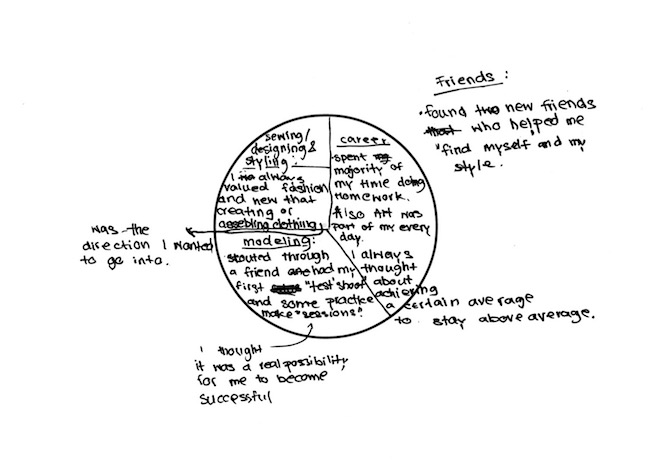 Friends:
• found two new friends
who helped me
"find myself and my
style.
sewing/
designing &
styling:
I always
valued fashion
and new that
creating or
assebling clothing
was the
direction I wanted
to go into.
career
spent
majority of
my time doing
Homework.
Also Art was
part of my every
day.
I always
thought
about
achieving
a certain average
to stay above average.
modeling:
scouted through
a friend and had my
first "test" shoot"
and some practice
make "sessions".
I thought
it was a real possibility
for me to become
successful